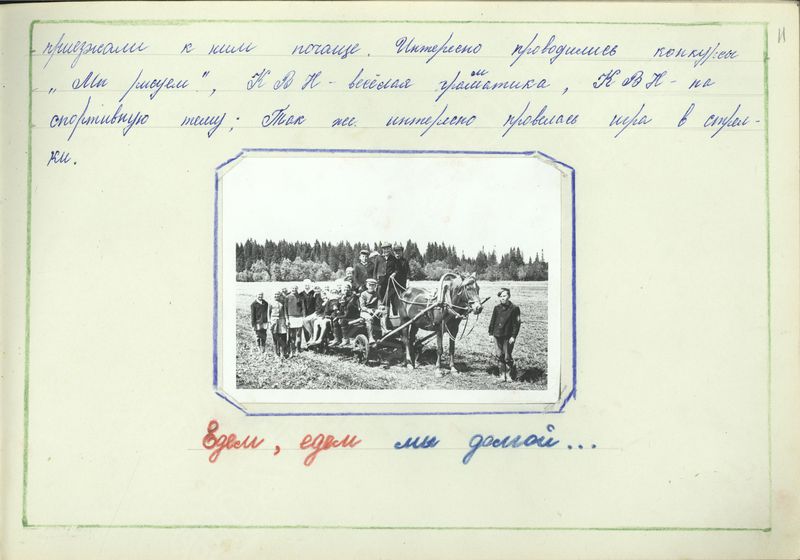 11
приезжали к ним почаще. Интересно проводились конкурсы
„Мы рисуем", КВН - весёлая граматика, КВН - на
спортивную тему; Так же интересно провелась игра в стрел-
ки.
Едем, едем мы домой...